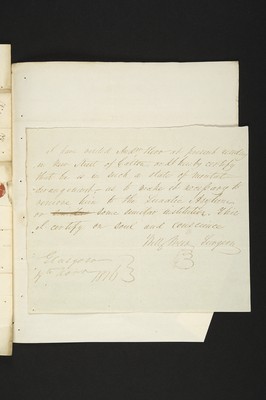 I have visited And.w Moor at present residing
in New Street of Calton and hereby certify
that he is in such a state of mental
derangement as to make it necessary to
remove him to the Lunatic Asylum
or some similar institution. This
I certify on soul and conscience
Surgeon
Glasgow